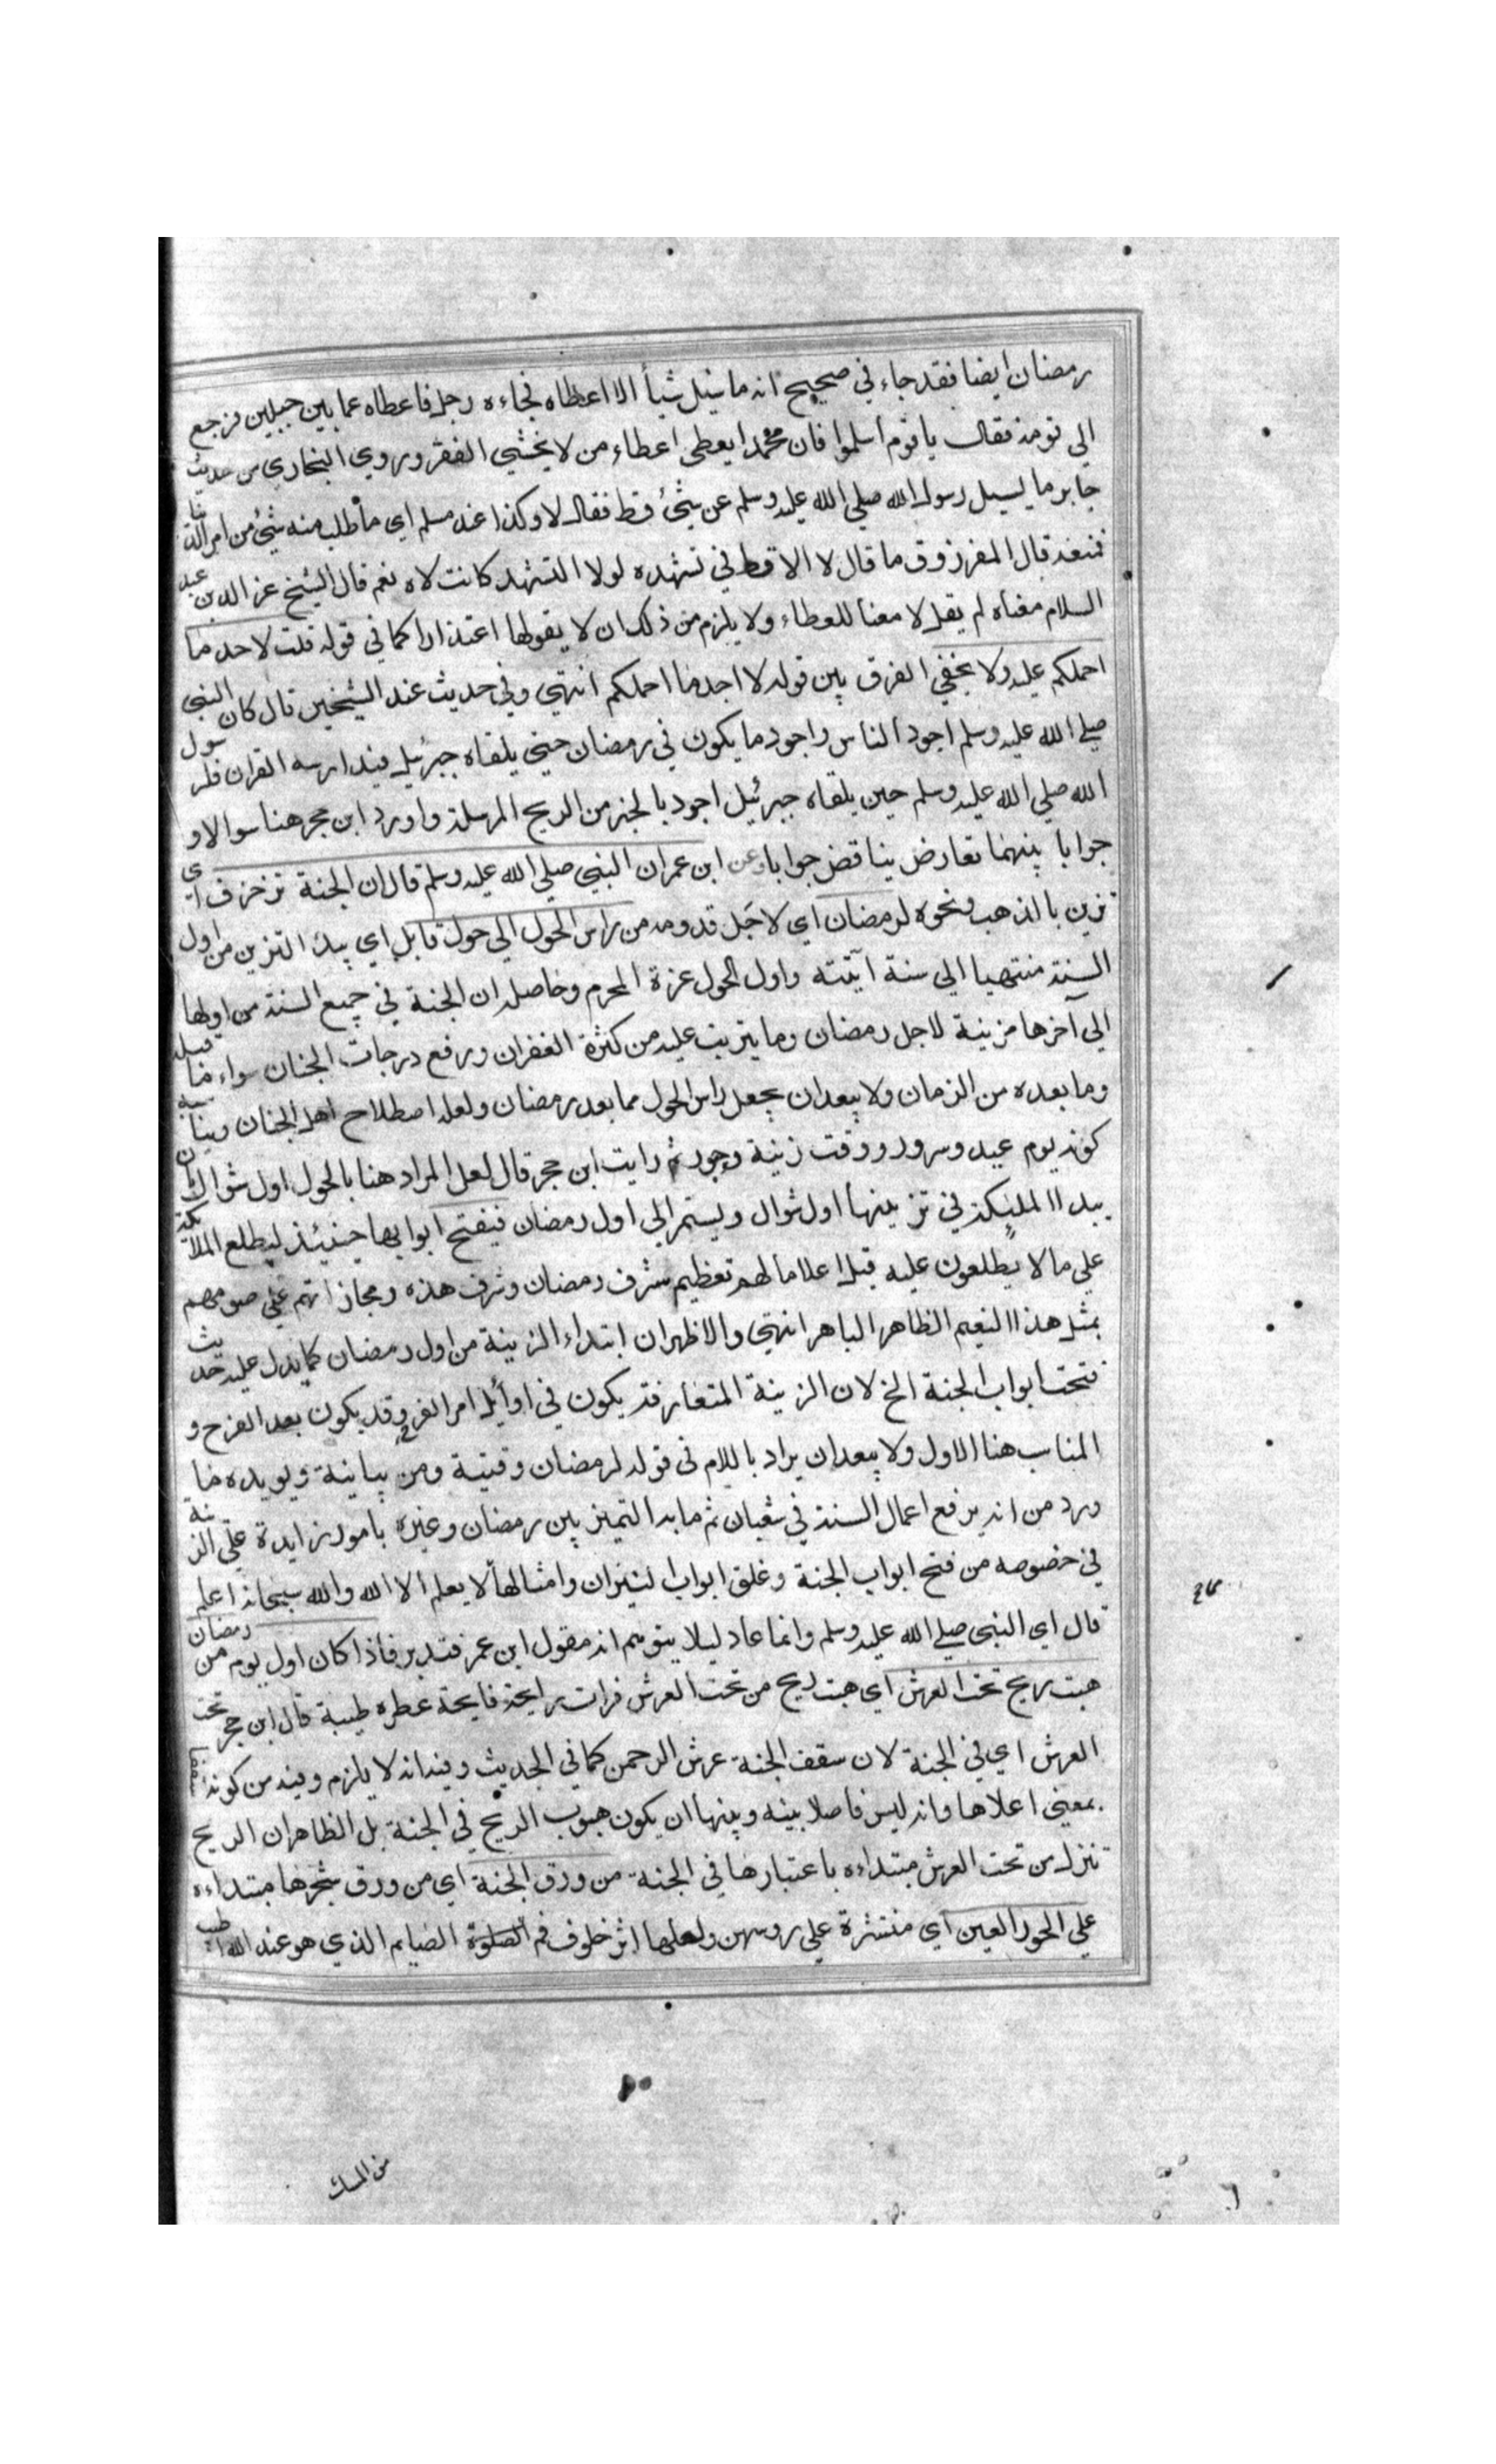 رمضان ايضا فقد جاء في صحيح انه ما سئل شيأ الا اعطاه فجاءه رجل فاعطاه عما بين جبلين فرجع
الي قومه فقال يا قوم اسلموا فان محمدا يعطي اعطاء من لا يخشي الفقر وروي البخاري من حديث
جابر ما يسيل رسول الله صلي الله عليه وسلم عن شئ قط فقال لا وكذا عند مسلم اي ما طلب منه شئ من امر الدنيا
فمنعه قال الفرزوق ما قال لا الا قط في تشهده لولا التشهد كانت لاه نعم قال الشيخ عز الدين عبد
السلام معناه لم يقل لا معنا للعطاء ولا يلزم من ذلك ان لا يقولها اعتذارا كما في قوله قلت لا حد ما
احملكم عليه ولا يخفي الفرق بين قوله لا اجد ما احملكم انتهي وفي حديث عند الشيخين قال كان النبي
صلي الله عليه وسلم اجود الناس واجود ما يكون في رمضان حين يلقاه جبرئيل فيدارسه القران فلرسول
الله صلي الله عليه وسلم حين يلقاه جبرئيل اجود بالخير من الريح المرسلة واورد ابن حجر هنا سوالا و
جوابا بينهما تعارض يناقض جوابا وعن ابن عمر ان النبي صلي الله عليه وسلم قال ان الجنة تزخرف اي
تزين بالذهب ونحوه لرمضان اي لاجل قدومه من راس الحول الي حول قابل اي يبدء التزين من اول
السنة منتهيا الي سنة آتيته واول الحول غرة المحرم وحاصله ان الجنة في جميع السنة من اولها
الي آخرها مزينة لاجل رمضان وما يترتب عليه من كثرة الغفران ورفع درجات الجنان سواء ما قبله
وما بعده من الزمان ولا يبعد ان يجعل راس الحول مما بعد رمضان ولعله اصطلاح اهل الجنان ويناسبه
كونه يوم عيد وسرور ووقت زينة وجود ثم رايت ابن حجر قال لعل المراد هنا بالحول اول شوال
يبداا المليكة في تزيينها اول شوال ويستمر الي اول رمضان فيفتح ابوابها حينئذ ليطلع الملائكة
علي ما لا يطلعون عليه قبل اعلاما لهم تعظيم شرف رمضان وشرف هذه ومجازاتهم علي صومهم
بمثل هذا النعيم الظاهر الباهر انتهي والاظهر ان ابتداء الزينة من اول رمضان كما يدل عليه حديث
فتحت ابواب الجنة الخ لان الزينة المتعارفة يكون في اوائل امر الفرح وقد يكون بعد الفرح و
المناسب هنا الاول ولا يبعد ان يراد باللام في قوله لرمضان وقتية ومن بيانية ويويده ما
ورد من انه يرفع اعمال السنة في شعبان ثم ما بدا التميز بين رمضان وغيره بامور زايدة علي الزينة
في خصوصه من فتح ابواب الجنة وغلق ابواب النيران وامثالها لا يعلم الا الله والله سبحانه اعلم
قال اي النبي صلي الله عليه وسلم وانما عاد ليلا يتوهم انه مقول ابن عمر فتدبر فاذا كان اول يوم من رمضان
هبت ريح تحت العرش اي هبت ريح من تحت العرش فرات برايحة فايحة عطره طيبة قال ابن حجر تحت
العرش اي في الجنة لان سقف الجنة عرش الرحمن كما في الحديث وفيه انه لا يلزم وفيه من كونه سقفا
بمعني اعلاها وانه ليس فاصلا بينه وبينها ان يكون هبوب الريح في الجنة بل الظاهر ان الريح
تنزل من تحت العرش مبتداءه باعتبارها في الجنة من ورق الجنة اي من ورق شجرها مبتداءه
علي الحور العين اي منتشرة علي روسهن ولعلها اثر خلوف فم الصلوة الصايم الذي هو عند الله اطيب
من المسك